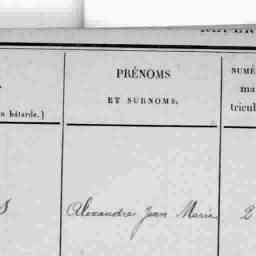 PRÉNOMS
ET SURNOMS.
NUMÉ
ma
tricul
n bâtarde.)
S
Alexandre Jean Marie
2